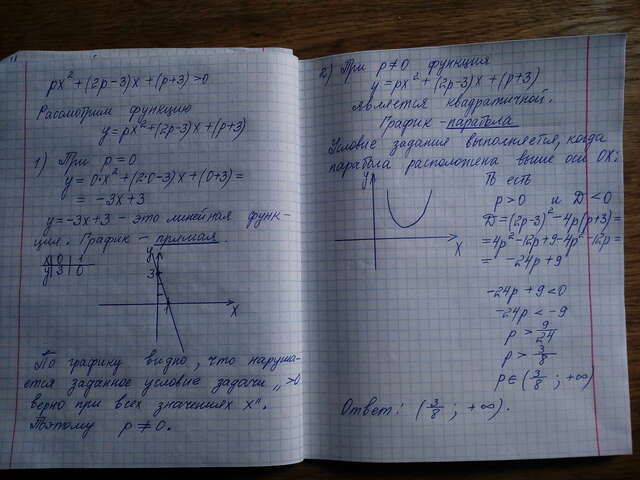 px² + (2p-3)x + (p+3) > 0
Рассмотрим функцию
y = px² + (2p-3)x + (p+3)
1) При p = 0
y = 0·x² + (2·0-3)x + (0+3) =
= -3x + 3
y = -3x + 3 - это линейная функ-
ция. График - прямая
x | 0 | 1
y | 3 | 0
y
3
1
x
По графику видно, что наруша-
ется заданное условие задачи „>0
верно при всех значениях x".
Поэтому p ≠ 0.
2) При p ≠ 0 функция
y = px² + (2p-3)x + (p+3)
является квадратичной.
График - парабола
Условие задания выполняется, когда
парабола расположена выше оси OX:
y
x
То есть
p > 0 и D < 0
D = (2p-3)² - 4p(p+3) =
= 4p² - 12p + 9 - 4p² - 12p =
= -24p + 9
-24p + 9 < 0
-24p < -9
p > 9/24
p > 3/8
p ∈ (3/8; +∞)
Ответ: (3/8; +∞).